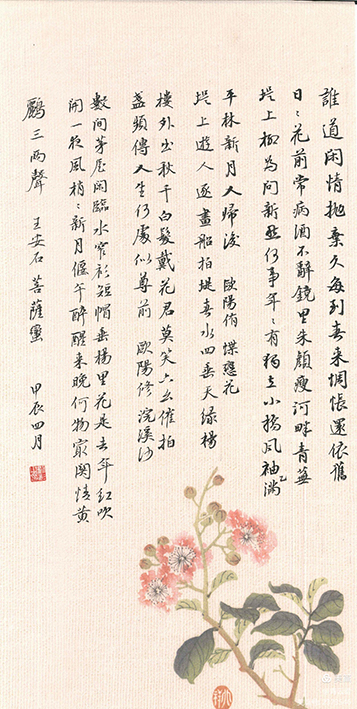 誰道閒情抛棄久每到春来惆悵還依舊
日〻花前常病酒不辭鏡里朱顔瘦河畔青蕪
堤上柳為問新愁何事年〻有獨立小橋風袖滿
平林新月人歸後 歐陽脩 蝶戀花
堤上遊人逐畫船拍堤春水四垂天緑楊
樓外出秋千白髮戴花君莫笑六幺催拍
盞頻傳人生何處似尊前 歐陽修 浣溪沙
數間茅屋閒臨水窄衫短帽垂楊里花是去年紅吹
開一夜風梢〻新月偃午醉醒来晚何物最関情黄
鸝三兩聲 王安石 菩薩蠻 甲辰四月